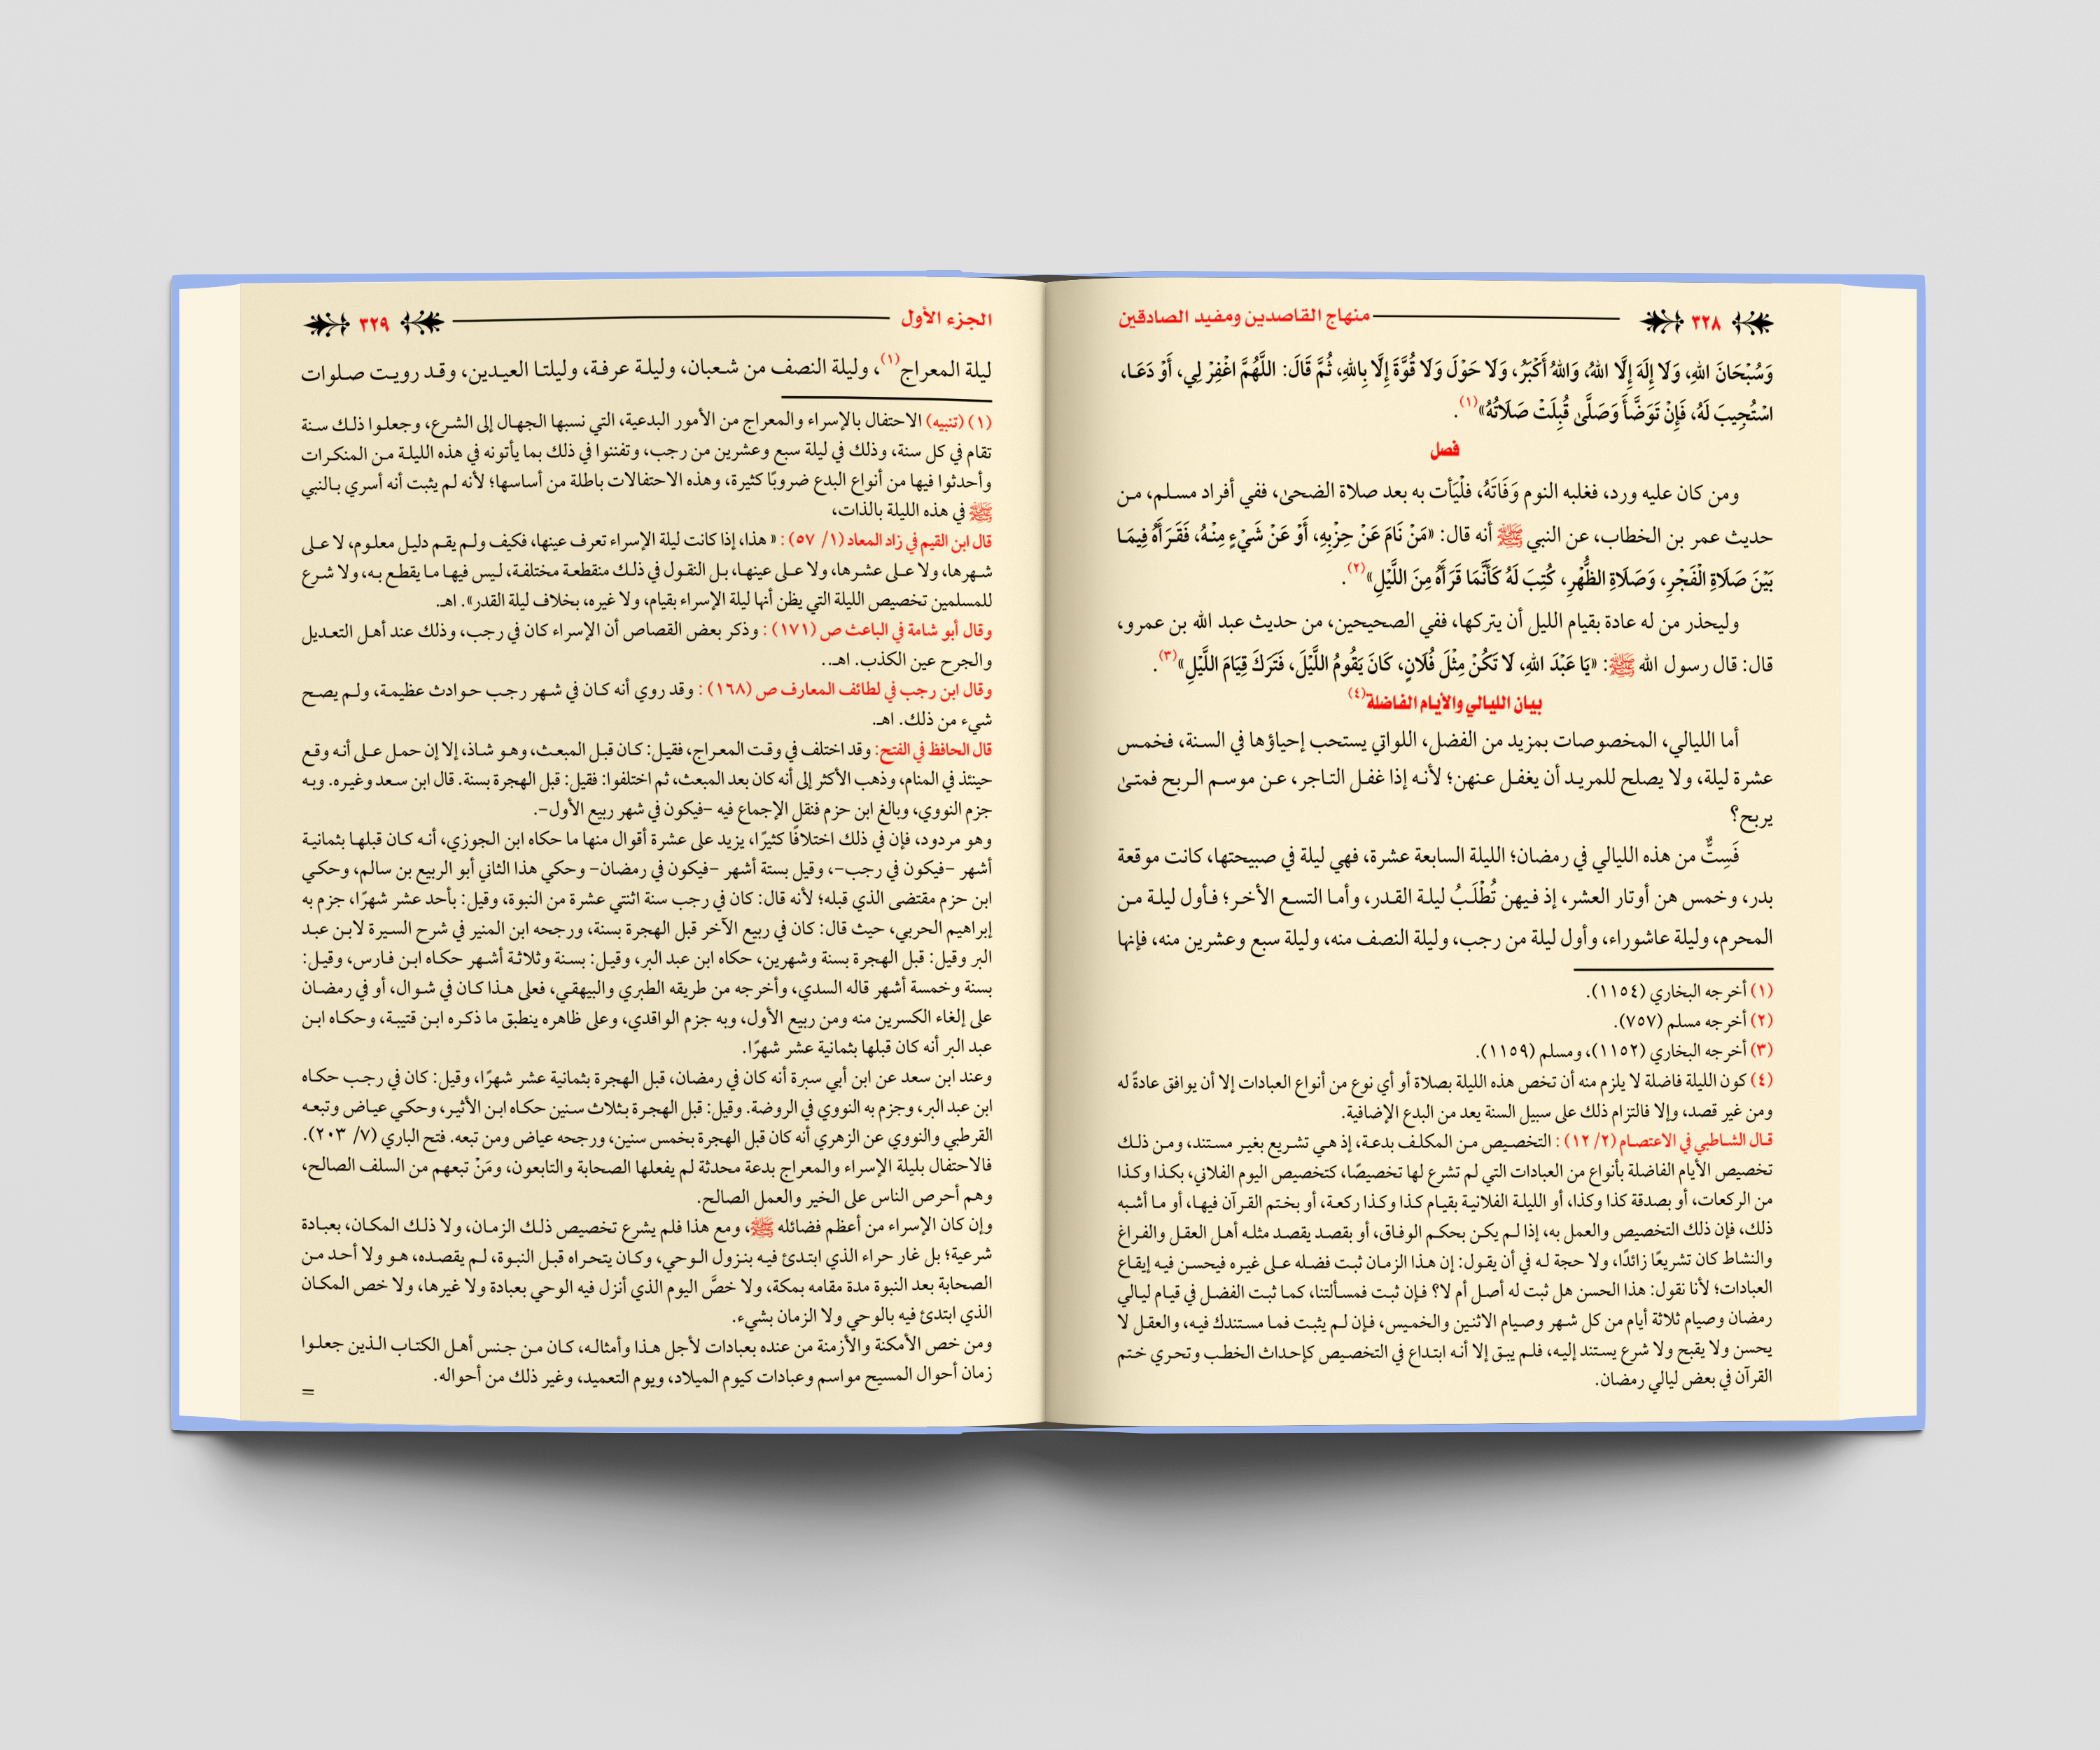 ٣٢٨ منهاج القاصدين ومفيد الصادقين
وَسُبْحَانَ اللهِ، وَلَا إِلَهَ إِلَّا اللهُ، وَاللهُ أَكْبَرُ، وَلَا حَوْلَ وَلَا قُوَّةَ إِلَّا بِاللهِ، ثُمَّ قَالَ: اللَّهُمَّ اغْفِرْ لِي، أَوْ دَعَا،
اسْتُجِيبَ لَهُ، فَإِنْ تَوَضَّأَ وَصَلَّىٰ قُبِلَتْ صَلَاتُهُ»(١).
فصل
ومن كان عليه ورد، فغلبه النوم وَفَاتَهُ، فلْيَأت به بعد صلاة الضحىٰ، ففي أفراد مسلم، من
حديث عمر بن الخطاب، عن النبي ﷺ أنه قال: «مَنْ نَامَ عَنْ حِزْبِهِ، أَوْ عَنْ شَيْءٍ مِنْهُ، فَقَرَأَهُ فِيمَا
بَيْنَ صَلَاةِ الْفَجْرِ، وَصَلَاةِ الظُّهْرِ، كُتِبَ لَهُ كَأَنَّمَا قَرَأَهُ مِنَ اللَّيْلِ»(٢).
وليحذر من له عادة بقيام الليل أن يتركها، ففي الصحيحين، من حديث عبد الله بن عمرو،
قال: قال رسول الله ﷺ: «يَا عَبْدَ اللهِ، لَا تَكُنْ مِثْلَ فُلَانٍ، كَانَ يَقُومُ اللَّيْلَ، فَتَرَكَ قِيَامَ اللَّيْلِ»(٣).
بيان الليالي والأيام الفاضلة(٤)
أما الليالي، المخصوصات بمزيد من الفضل، اللواتي يستحب إحياؤها في السنة، فخمس
عشرة ليلة، ولا يصلح للمريد أن يغفل عنهن؛ لأنه إذا غفل التاجر، عن موسم الربح فمتىٰ
يربح؟
فَسِتٌّ من هذه الليالي في رمضان؛ الليلة السابعة عشرة، فهي ليلة في صبيحتها، كانت موقعة
بدر، وخمس هن أوتار العشر، إذ فيهن تُطْلَبُ ليلة القدر، وأما التسع الأخر؛ فأول ليلة من
المحرم، وليلة عاشوراء، وأول ليلة من رجب، وليلة النصف منه، وليلة سبع وعشرين منه، فإنها
(١) أخرجه البخاري (١١٥٤).
(٢) أخرجه مسلم (٧٥٧).
(٣) أخرجه البخاري (١١٥٢)، ومسلم (١١٥٩).
(٤) كون الليلة فاضلة لا يلزم منه أن تخص هذه الليلة بصلاة أو أي نوع من أنواع العبادات إلا أن يوافق عادةً له
ومن غير قصد، وإلا فالتزام ذلك على سبيل السنة يعد من البدع الإضافية.
قال الشاطبي في الاعتصام (٢/ ١٢) : التخصيص من المكلف بدعة، إذ هي تشريع بغير مستند، ومن ذلك
تخصيص الأيام الفاضلة بأنواع من العبادات التي لم تشرع لها تخصيصًا، كتخصيص اليوم الفلاني، بكذا وكذا
من الركعات، أو بصدقة كذا وكذا، أو الليلة الفلانية بقيام كذا وكذا ركعة، أو بختم القرآن فيها، أو ما أشبه
ذلك، فإن ذلك التخصيص والعمل به، إذا لم يكن بحكم الوفاق، أو بقصد يقصد مثله أهل العقل والفراغ
والنشاط كان تشريعًا زائدًا، ولا حجة له في أن يقول: إن هذا الزمان ثبت فضله على غيره فيحسن فيه إيقاع
العبادات؛ لأنا نقول: هذا الحسن هل ثبت له أصل أم لا؟ فإن ثبت فمسألتنا، كما ثبت الفضل في قيام ليالي
رمضان وصيام ثلاثة أيام من كل شهر وصيام الاثنين والخميس، فإن لم يثبت فما مستندك فيه، والعقل لا
يحسن ولا يقبح ولا شرع يستند إليه، فلم يبق إلا أنه ابتداع في التخصيص كإحداث الخطب وتحري ختم
القرآن في بعض ليالي رمضان.
الجزء الأول ٣٢٩
ليلة المعراج(١)، وليلة النصف من شعبان، وليلة عرفة، وليلتا العيدين، وقد رويت صلوات
(١) (تنبيه) الاحتفال بالإسراء والمعراج من الأمور البدعية، التي نسبها الجهال إلى الشرع، وجعلوا ذلك سنة
تقام في كل سنة، وذلك في ليلة سبع وعشرين من رجب، وتفننوا في ذلك بما يأتونه في هذه الليلة من المنكرات
وأحدثوا فيها من أنواع البدع ضروبًا كثيرة، وهذه الاحتفالات باطلة من أساسها؛ لأنه لم يثبت أنه أسري بالنبي
ﷺ في هذه الليلة بالذات،
قال ابن القيم في زاد المعاد (١/ ٥٧) : « هذا، إذا كانت ليلة الإسراء تعرف عينها، فكيف ولم يقم دليل معلوم، لا على
شهرها، ولا على عشرها، ولا على عينها، بل النقول في ذلك منقطعة مختلفة، ليس فيها ما يقطع به، ولا شرع
للمسلمين تخصيص الليلة التي يظن أنها ليلة الإسراء بقيام، ولا غيره، بخلاف ليلة القدر». اهـ.
وقال أبو شامة في الباعث ص (١٧١) : وذكر بعض القصاص أن الإسراء كان في رجب، وذلك عند أهل التعديل
والجرح عين الكذب. اهـ..
وقال ابن رجب في لطائف المعارف ص (١٦٨) : وقد روي أنه كان في شهر رجب حوادث عظيمة، ولم يصح
شيء من ذلك. اهـ.
قال الحافظ في الفتح: وقد اختلف في وقت المعراج، فقيل: كان قبل المبعث، وهو شاذ، إلا إن حمل على أنه وقع
حينئذ في المنام، وذهب الأكثر إلى أنه كان بعد المبعث، ثم اختلفوا: فقيل: قبل الهجرة بسنة. قال ابن سعد وغيره. وبه
جزم النووي، وبالغ ابن حزم فنقل الإجماع فيه –فيكون في شهر ربيع الأول–.
وهو مردود، فإن في ذلك اختلافًا كثيرًا، يزيد على عشرة أقوال منها ما حكاه ابن الجوزي، أنه كان قبلها بثمانية
أشهر –فيكون في رجب–، وقيل بستة أشهر –فيكون في رمضان– وحكي هذا الثاني أبو الربيع بن سالم، وحكي
ابن حزم مقتضى الذي قبله؛ لأنه قال: كان في رجب سنة اثنتي عشرة من النبوة، وقيل: بأحد عشر شهرًا، جزم به
إبراهيم الحربي، حيث قال: كان في ربيع الآخر قبل الهجرة بسنة، ورجحه ابن المنير في شرح السيرة لابن عبد
البر وقيل: قبل الهجرة بسنة وشهرين، حكاه ابن عبد البر، وقيل: بسنة وثلاثة أشهر حكاه ابن فارس، وقيل:
بسنة وخمسة أشهر قاله السدي، وأخرجه من طريقه الطبري والبيهقي، فعلى هذا كان في شوال، أو في رمضان
على إلغاء الكسرين منه ومن ربيع الأول، وبه جزم الواقدي، وعلى ظاهره ينطبق ما ذكره ابن قتيبة، وحكاه ابن
عبد البر أنه كان قبلها بثمانية عشر شهرًا.
وعند ابن سعد عن ابن أبي سبرة أنه كان في رمضان، قبل الهجرة بثمانية عشر شهرًا، وقيل: كان في رجب حكاه
ابن عبد البر، وجزم به النووي في الروضة. وقيل: قبل الهجرة بثلاث سنين حكاه ابن الأثير، وحكي عياض وتبعه
القرطبي والنووي عن الزهري أنه كان قبل الهجرة بخمس سنين، ورجحه عياض ومن تبعه. فتح الباري (٧/ ٢٠٣).
فالاحتفال بليلة الإسراء والمعراج بدعة محدثة لم يفعلها الصحابة والتابعون، ومَنْ تبعهم من السلف الصالح،
وهم أحرص الناس على الخير والعمل الصالح.
وإن كان الإسراء من أعظم فضائله ﷺ، ومع هذا فلم يشرع تخصيص ذلك الزمان، ولا ذلك المكان، بعبادة
شرعية؛ بل غار حراء الذي ابتدئ فيه بنزول الوحي، وكان يتحراه قبل النبوة، لم يقصده، هو ولا أحد من
الصحابة بعد النبوة مدة مقامه بمكة، ولا خصَّ اليوم الذي أنزل فيه الوحي بعبادة ولا غيرها، ولا خص المكان
الذي ابتدئ فيه بالوحي ولا الزمان بشيء.
ومن خص الأمكنة والأزمنة من عنده بعبادات لأجل هذا وأمثاله، كان من جنس أهل الكتاب الذين جعلوا
زمان أحوال المسيح مواسم وعبادات كيوم الميلاد، ويوم التعميد، وغير ذلك من أحواله.
=